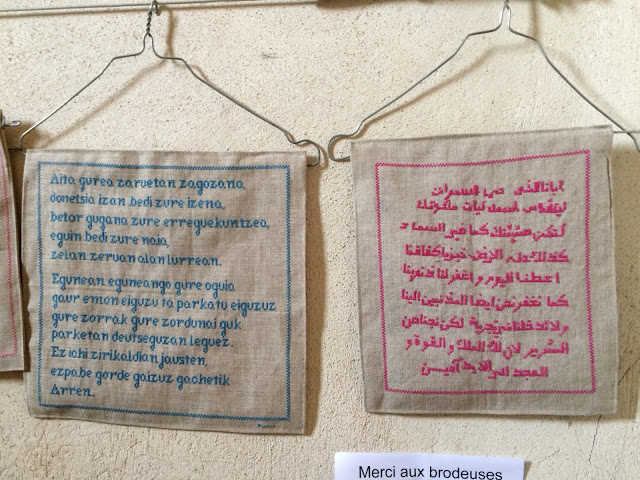 Aita gurea zaruetan zagozana
donetsia izan bedi zure izena,
betor gugana zure erreguekuntzea,
eguin bedi zure naia,
zelan zeruan alan lurrean.
Egunean eguneango gure oguia
gaur emon eiguzu ta parkatu eiguzuz
gure zorrak gure zordunai guk
parketan deutseguzan leguez.
Ez ichi zirikaldian jausten,
ezpabe gorde gaizuz gachetik
Arren.
ابانا الذي في السموات
ليتقدس اسمك ليات ملكوتك
لتكن مشيئتك كما في السما
كذلك على الارض خبزنا كفافنا
اعطنا اليوم و اغفر لنا ذنوبنا
كما نغفر نحن ايضا للمذنبين الينا
و لا تدخلنا في تجربة لكن نجنا من
الشرير لان لك الملك و القوة و
المجد الى الابد آمين
Merci aux brodeuses